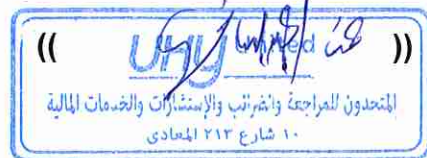 (( UHY United ))
المتحدون للمراجعة والضرائب والإستشارات والخدمات المالية
١٠ شارع ٢١٣ المعادى